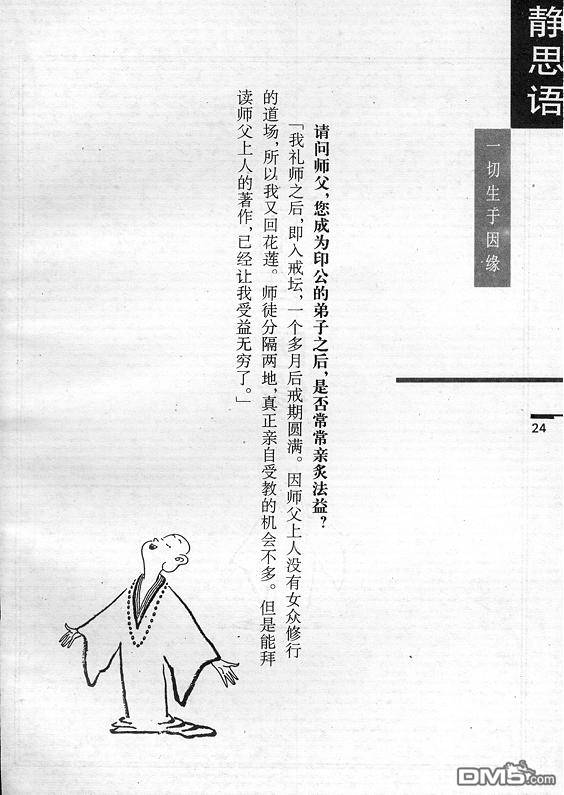 静思语
一切生于因缘
24
请问师父，您成为印公的弟子之后，是否常常亲炙法益？
「我礼师之后，即入戒坛，一个多月后戒期圆满。因师父上人没有女众修行
的道场，所以我又回花莲。师徒分隔两地，真正亲自受教的机会不多。但是能拜
读师父上人的著作，已经让我受益无穷了。」
DM5.com